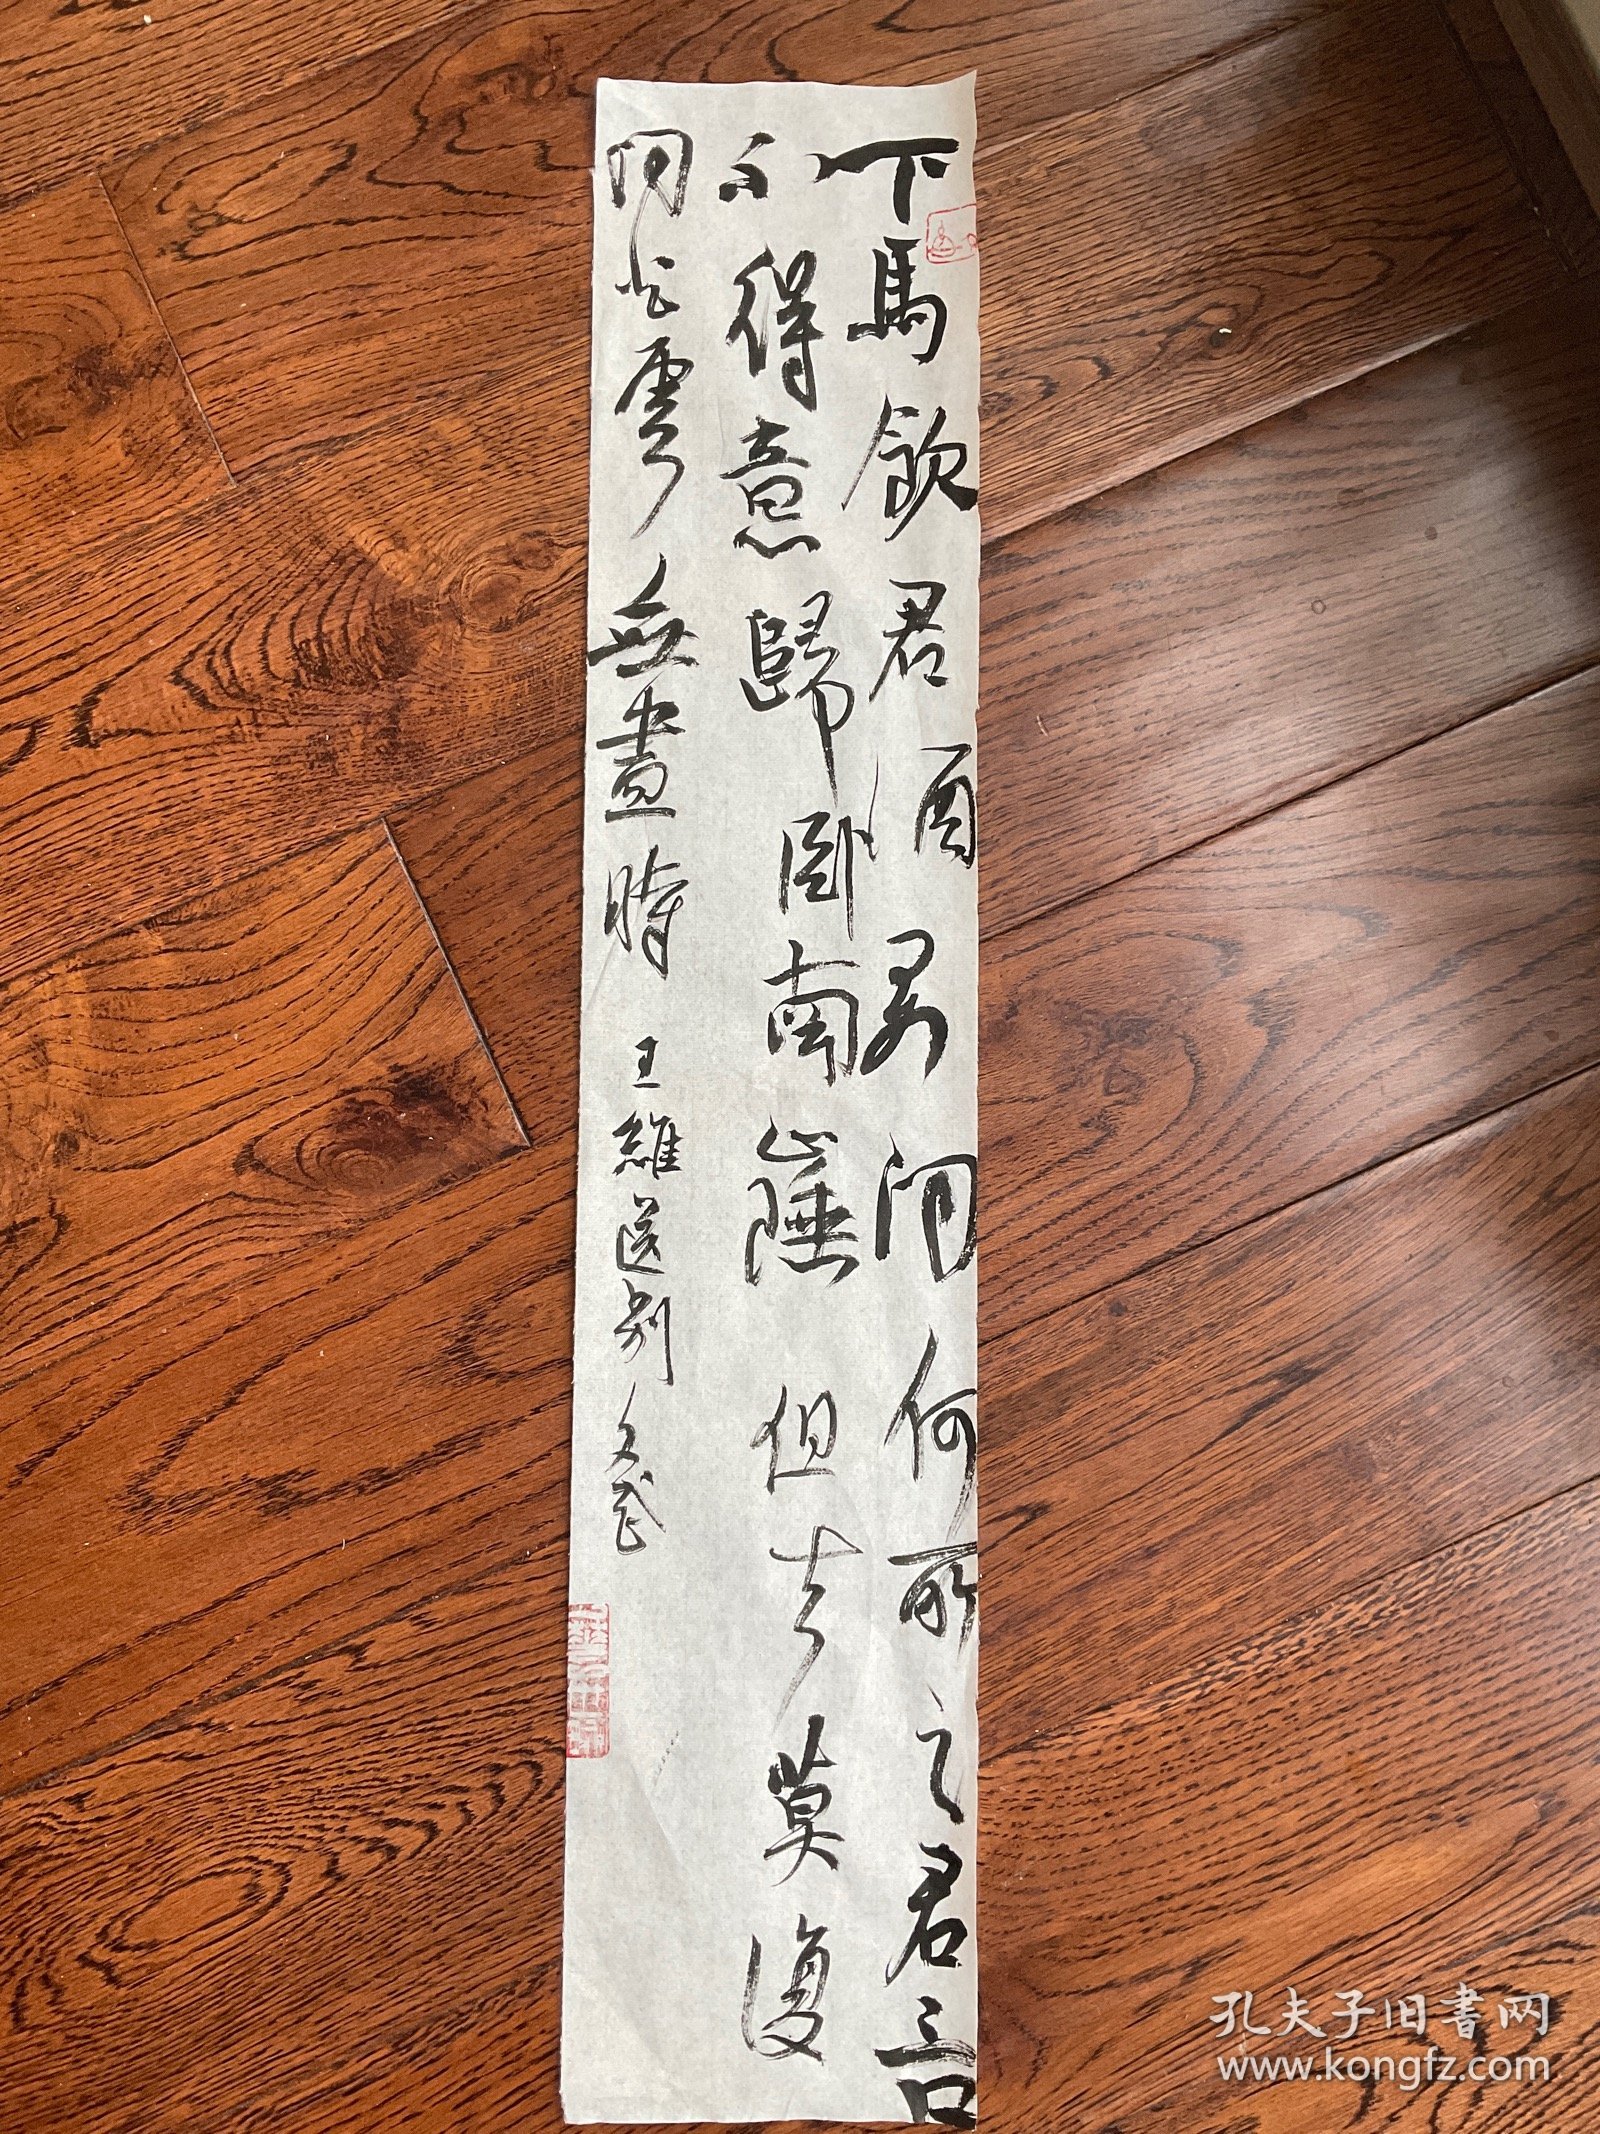 下馬飲君酒問何所之君言
不得意歸卧南山陲但去莫復
問白雲無盡時 王維送别 文武
孔夫子旧書网
www.kongfz.com